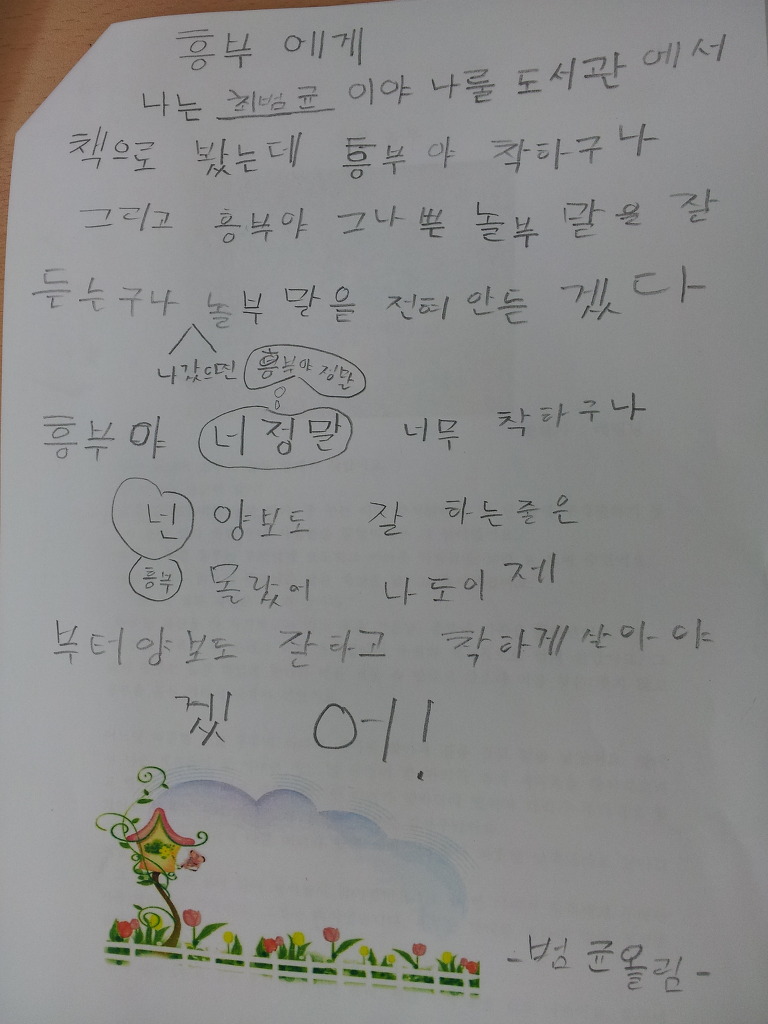 흥부 에게
나는 최범균 이야 나룰 도서관 에서
책으로 봤는데 흥부야 착타구나
그리고 흥부야 그나쁜 놀부 말을 잘
듣는구나 놀부 말을 전떠 안듣 겠다
나갔으면 흥부야 정말
흥부야 너정말 너무 착타구나
넌 양보도 잘 하는줄은
흥부 몰랐어 나도이제
부터양보도 잘타고 착하게살아야
겠어!
-범균올림-